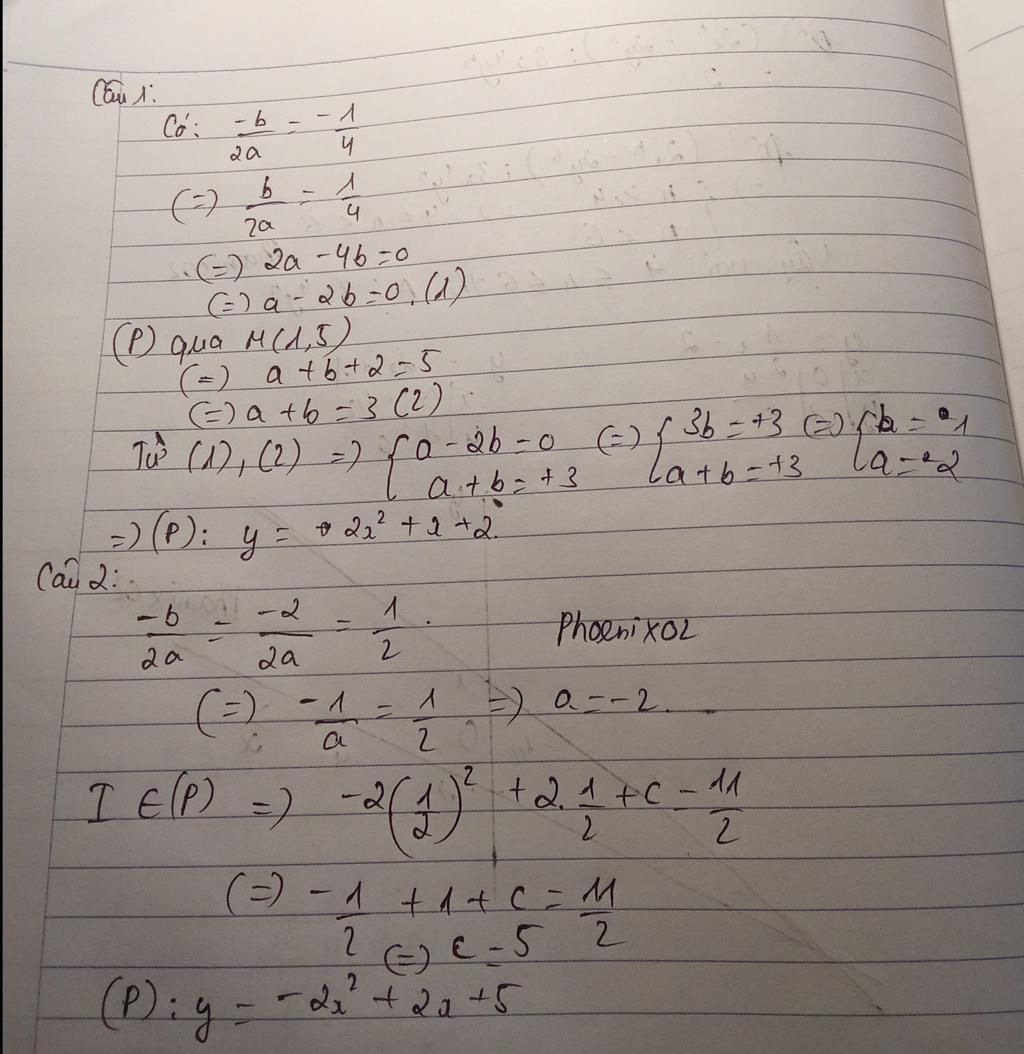 Câu 1:
Có: -b/2a = -1/4
(=) b/2a = 1/4
(=) 2a - 4b = 0
(=) a - 2b = 0. (1)
(P) qua M(1,5)
(=) a + b + 2 = 5
(=) a + b = 3 (2)
Từ (1), (2) =) { a - 2b = 0 ; a + b = +3 (=) { 3b = +3 ; a + b = +3 (=) { b = 1 ; a = 2
=) (P): y = 2x² + x + 2.
Câu 2:
-b/2a = -2/2a = 1/2.
Phoenix02
(=) -1/a = 1/2 =) a = -2.
I ∈ (P) =) -2(1/2)² + 2.1/2 + c = 11/2
(=) -1/2 + 1 + c = 11/2
(=) c = 5
(P): y = -2x² + 2x + 5